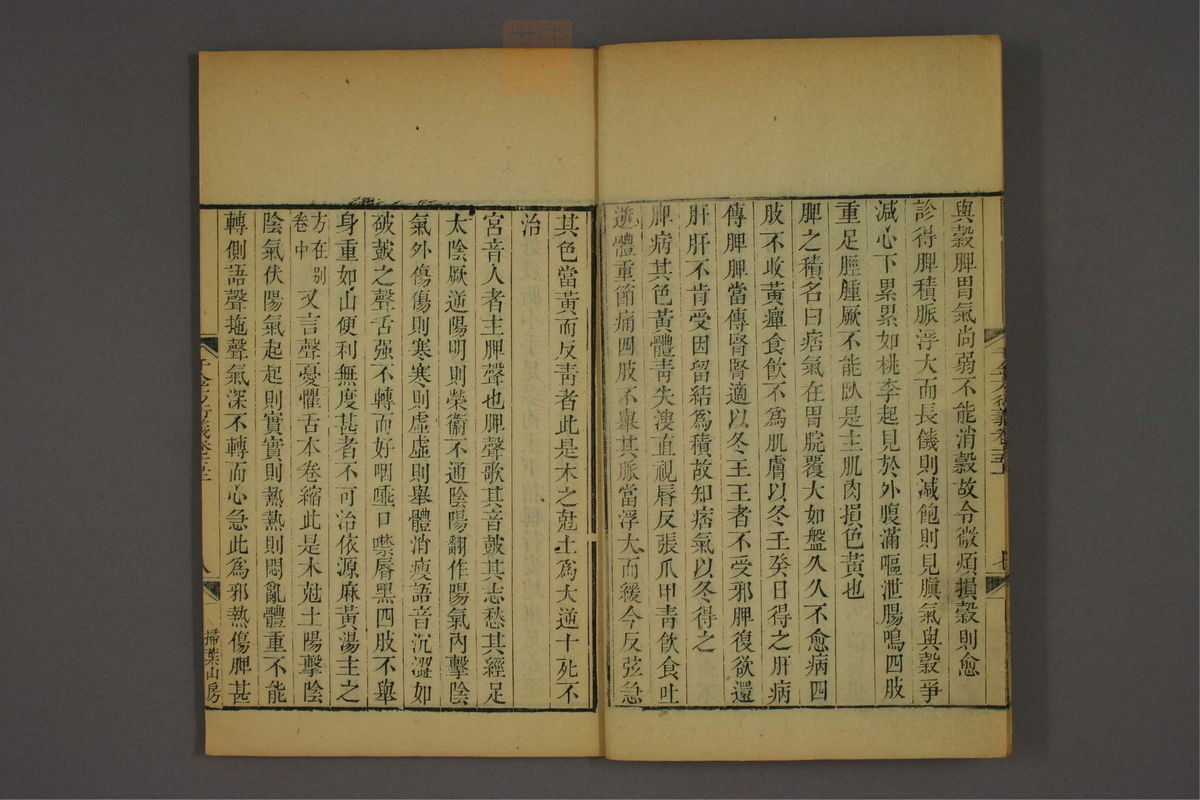 與穀脾胃氣尚弱不能消穀故令微煩損穀則愈
診得脾積脈浮大而長饑則減飽則見䐜氣與穀爭
減心下累累如桃李起見於外腹滿嘔泄腸鳴四肢
重足脛腫厥不能臥是主肌肉損色黃也
脾之積名曰痞氣在胃脘覆大如盤久久不愈病四
肢不收黃癉食飲不為肌膚以冬壬癸日得之肝病
傳脾脾當傳腎腎適以冬王王者不受邪脾復欲還
肝肝不肯受因留結為積故知痞氣以冬得之
脾病其色黃體青失溲直視唇反張爪甲青飲食吐
逆體重節痛四肢不舉其脈當浮大而緩今反弦急
其色當黃而反青者此是木之尅土為大逆十死不
治
宮音人者主脾聲也脾聲歌其音鼓其志愁其經足
太陰厥逆陽明則榮衞不通陰陽翻作陽氣內擊陰
氣外傷傷則寒寒則虛虛則舉體消瘦語音沉澀如
破鼓之聲舌强不轉而好咽唾口噤唇黑四肢不舉
身重如山便利無度甚者不可治依源麻黃湯主之
方在别卷中又言聲憂懼舌本卷縮此是木尅土陽擊陰
陰氣伏陽氣起起則實實則熱熱則悶亂體重不能
轉側語聲拖聲氣深不轉而心急此為邪熱傷脾甚
掃葉山房